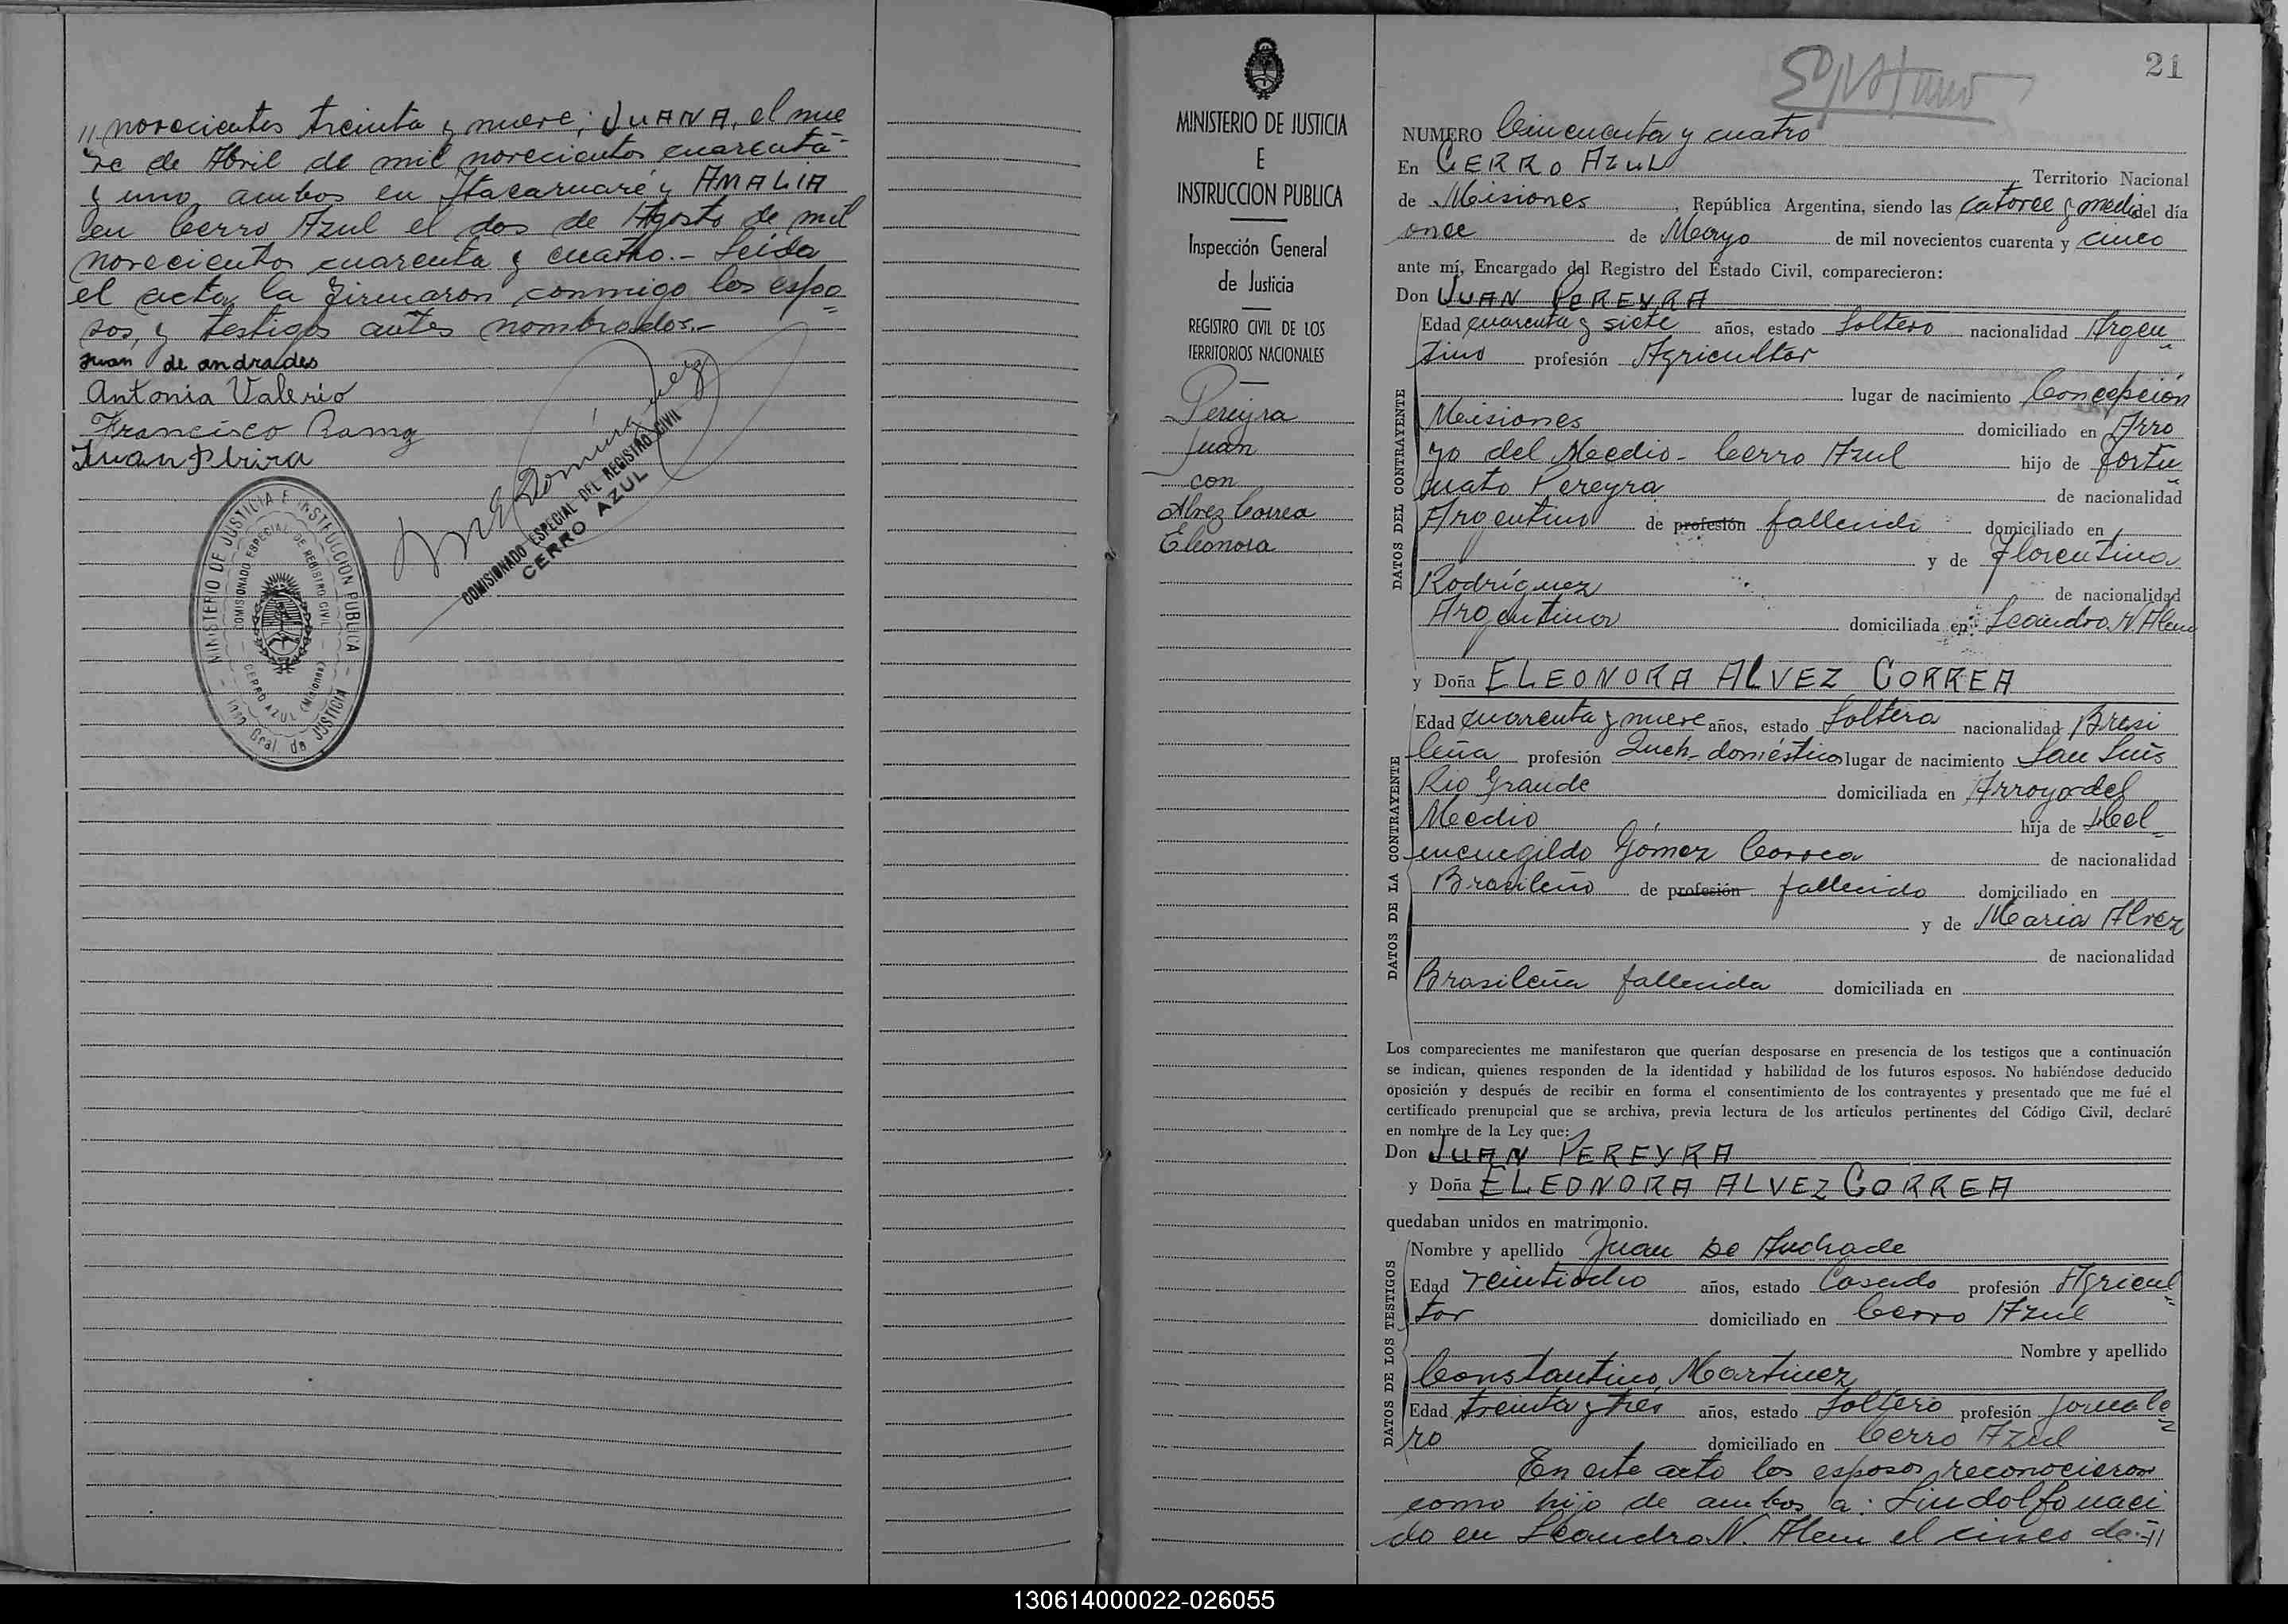 // novecientos treinta y nueve; JUANA, el nue
ve de Abril de mil novecientos cuarenta
y uno ambos en Itacaruaré y AMALIA
en Cerro Azul el dos de Agosto de mil
novecientos cuarenta y cuatro.- Leída
el acta, la firmaron conmigo los espo=
sos, y testigos antes nombrados.-
Juan de andrades
Antonia Valerio
Francisco
Juan
COMISIONADO ESPECIAL DEL REGISTRO CIVIL
CERRO AZUL
MINISTERIO DE JUSTICIA E INSTRUCCION PUBLICA
COMISIONADO ESPECIAL DE REGISTRO CIVIL
CERRO AZUL (Misiones)
Gral. de JUSTICIA
MINISTERIO DE JUSTICIA
E
INSTRUCCION PUBLICA
Inspección General
de Justicia
REGISTRO CIVIL DE LOS
TERRITORIOS NACIONALES
Pereyra
Juan
con
Alvez Correa
Eleonora
21
NUMERO Cincuenta y cuatro
En CERRO AZUL Territorio Nacional
de Misiones, República Argentina, siendo las catorce y media del día
once de Mayo de mil novecientos cuarenta y cinco
ante mí, Encargado del Registro del Estado Civil, comparecieron:
Don JUAN PEREYRA
DATOS DEL CONTRAYENTE
Edad cuarenta y siete años, estado Soltero nacionalidad Argen=
tino profesión Agricultor
lugar de nacimiento Concepción
Misiones domiciliado en Arro
yo del Medio - Cerro Azul hijo de Fortu=
nato Pereyra de nacionalidad
Argentino de profesión fallecido domiciliado en
y de Florentina
Rodríguez de nacionalidad
Argentina domiciliada en Leandro N Alem
y Doña ELEONORA ALVEZ CORREA
DATOS DE LA CONTRAYENTE
Edad cuarenta y nueve años, estado Soltera nacionalidad Brasi
leña profesión Queh- doméstico lugar de nacimiento San Luis
Rio Grande domiciliada en Arroyo del
Medio hija de Hel=
menegildo Gómez Correa de nacionalidad
Brasileño de profesión fallecido domiciliado en
y de Maria Alvez
de nacionalidad
Brasileña fallecida domiciliada en
Los comparecientes me manifestaron que querían desposarse en presencia de los testigos que a continuación
se indican, quienes responden de la identidad y habilidad de los futuros esposos. No habiéndose deducido
oposición y después de recibir en forma el consentimiento de los contrayentes y presentado que me fué el
certificado prenupcial que se archiva, previa lectura de los artículos pertinentes del Código Civil, declaré
en nombre de la Ley que:
Don JUAN PEREYRA
y Doña ELEONORA ALVEZ CORREA
quedaban unidos en matrimonio.
DATOS DE LOS TESTIGOS
Nombre y apellido Juan De Andrade
Edad veintiocho años, estado Casado profesión Agricul=
tor domiciliado en Cerro Azul
Nombre y apellido
Constantino Martinez
Edad treinta y tres años, estado Soltero profesión Jornale=
ro domiciliado en Cerro Azul
En este acto los esposos reconocieron
como hijo de ambos a: Lindolfo naci
do en Leandro N. Alem el cinco de-//
130614000022-026055